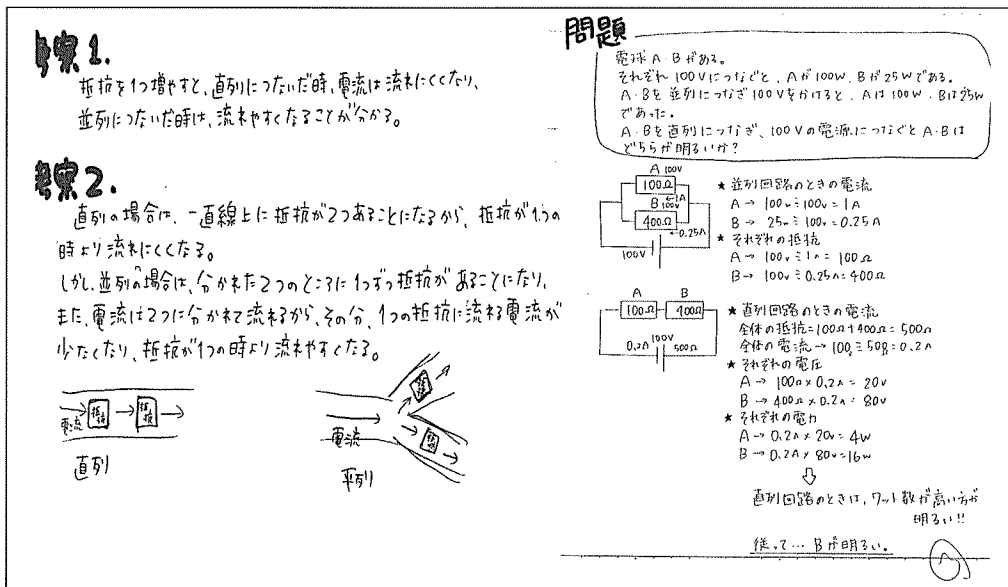 考察1.
抵抗を1つ増やすと、直列につないだ時、電流は流れにくくなり、
並列につないだ時は、流れやすくなることが分かる。
考察2.
直列の場合は、一直線上に抵抗が2つあることになるから、抵抗が1つの
時より流れにくくなる。
しかし、並列の場合は、分かれた2つのところに1つずつ抵抗があることになり、
また、電流は2つに分かれて流れるから、その分、1つの抵抗に流れる電流が
少なくなり、抵抗が1つの時より流れやすくなる。
電流 抵抗 抵抗
直列
抵抗
電流 抵抗
平列
問題
電球A・Bがある。
それぞれ100Vにつなぐと、Aが100W、Bが25Wである。
A・Bを並列につなぎ100Vをかけると、Aは100W、Bは25W
であった。
A・Bを直列につなぎ、100Vの電源につなぐとA・Bは
どちらが明るいか?
A 100V
100Ω
B 100V 1A
400Ω
0.25A
100V
★ 並列回路のときの電流
A→ 100w÷100v=1A
B→ 25w÷100v=0.25A
★ それぞれの抵抗
A→ 100v÷1A=100Ω
B→ 100v÷0.25A=400Ω
A B
100Ω 400Ω
0.2A 100V 500Ω
★ 直列回路のときの電流
全体の抵抗=100Ω+400Ω=500Ω
全体の電流→100÷500=0.2A
★ それぞれの電圧
A→ 100Ω×0.2A=20v
B→ 400Ω×0.2A=80v
★ それぞれの電力
A→ 0.2A×20v=4w
B→ 0.2A×80v=16w
⇩
直列回路のときは、ワット数が高い方が
明るい!!
従って… Bが明るい。